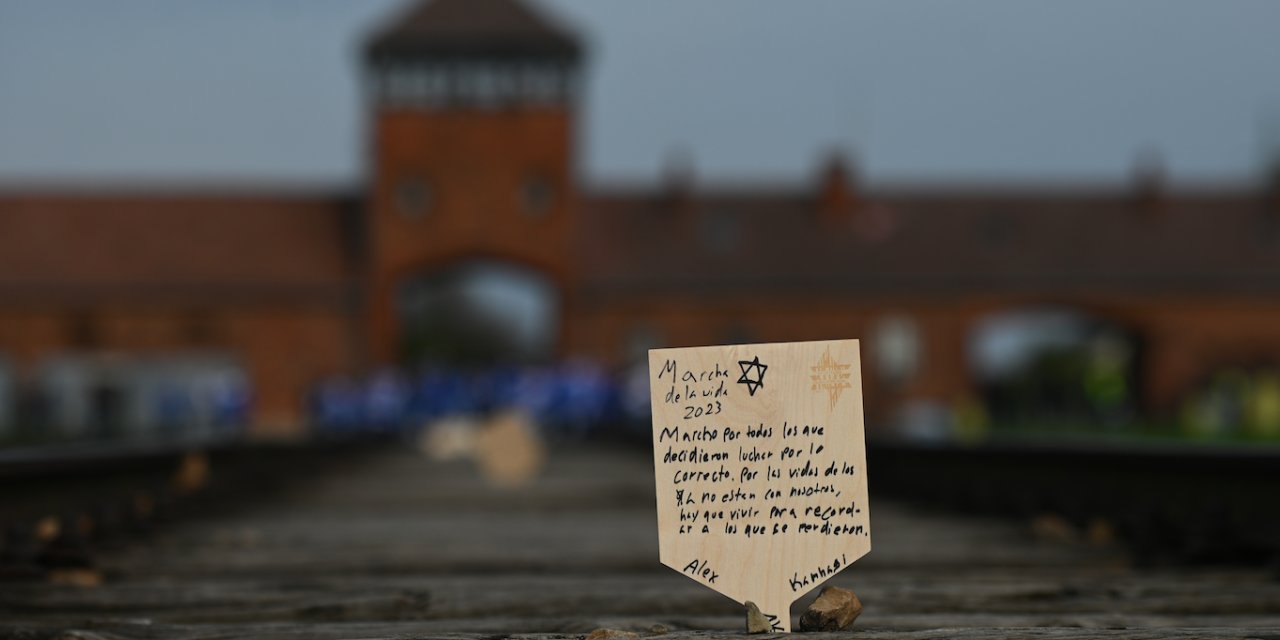 Marcha
de la vida
2023
Marcho por todos los que
decidieron luchar por lo
correcto. Por las vidas de los
no estan con nosotros,
hay que vivir para record-
ar a los que se perdieron.
Alex